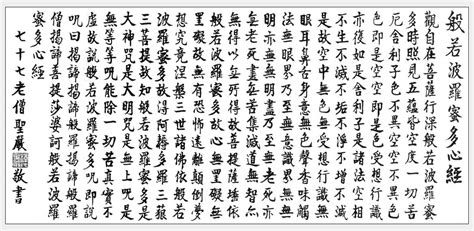 般若波羅蜜多心經
觀自在菩薩行深般若波羅蜜
多時照見五蘊皆空度一切苦
厄舍利子色不異空空不異色
色即是空空即是色受想行識
亦復如是舍利子是諸法空相
不生不滅不垢不淨不增不減
是故空中無色無受想行識無
眼耳鼻舌身意無色聲香味觸
法無眼界乃至無意識界無無
明亦無無明盡乃至無老死亦
無老死盡無苦集滅道無智亦
無得以無所得故菩提薩埵依
般若波羅蜜多故心無罣礙無
罣礙故無有恐怖遠離顛倒夢
想究竟涅槃三世諸佛依般若
波羅蜜多故得阿耨多羅三藐
三菩提故知般若波羅蜜多是
大神呪是大明呪是無上呪是
無等等呪能除一切苦真實不
虛故說般若波羅蜜多呪即說
呪曰揭諦揭諦般羅揭諦般羅
僧揭諦菩提莎婆訶般若波羅
蜜多心經
七十七老僧聖嚴敬書